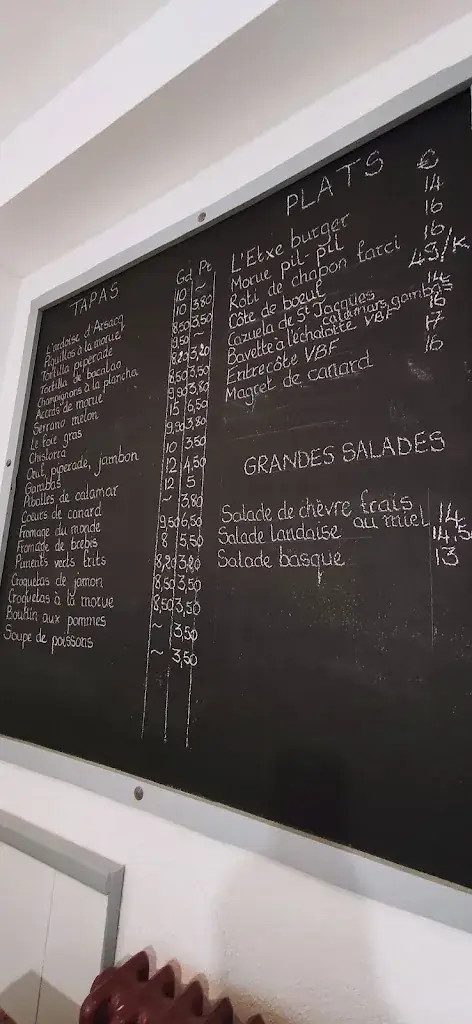 TAPAS Gd Pt
L'ardoise d'Arsacq 10 ~
Piquillos à la morue 10 3,80
Tortilla piperade 8,50 3,50
Tortilla de bacalao 9,50 ~
Champignons à la plancha 8,20 3,20
Accras de morue 8,50 3,50
Serrano melon 9,90 3,80
Le foie gras 15 6,50
Chistorra 9,90 3,80
Oeuf, piperade, jambon 10 3,50
Gambas 12 4,50
Piballes de calamar 12 5
Coeurs de canard ~ 3,80
Fromage du monde 9,50 6,50
Fromage de brebis 8 5,50
Piments verts frits 8,20 3,20
Croquetas de jamon 8,50 3,50
Croquetas à la morue 8,50 3,50
Boudin aux pommes ~ 3,50
Soupe de poissons ~ 3,50
PLATS €
L'Etxe burger 14
Morue pil-pil 16
Roti de chapon farci 16
Côte de boeuf 45/K
Cazuela de St Jacques calamars, gambas 14
Bavette à l'échalotte VBF 16
Entrecôte VBF 17
Magret de canard 16
GRANDES SALADES
Salade de chèvre frais au miel 14
Salade landaise 14,5
Salade basque 13